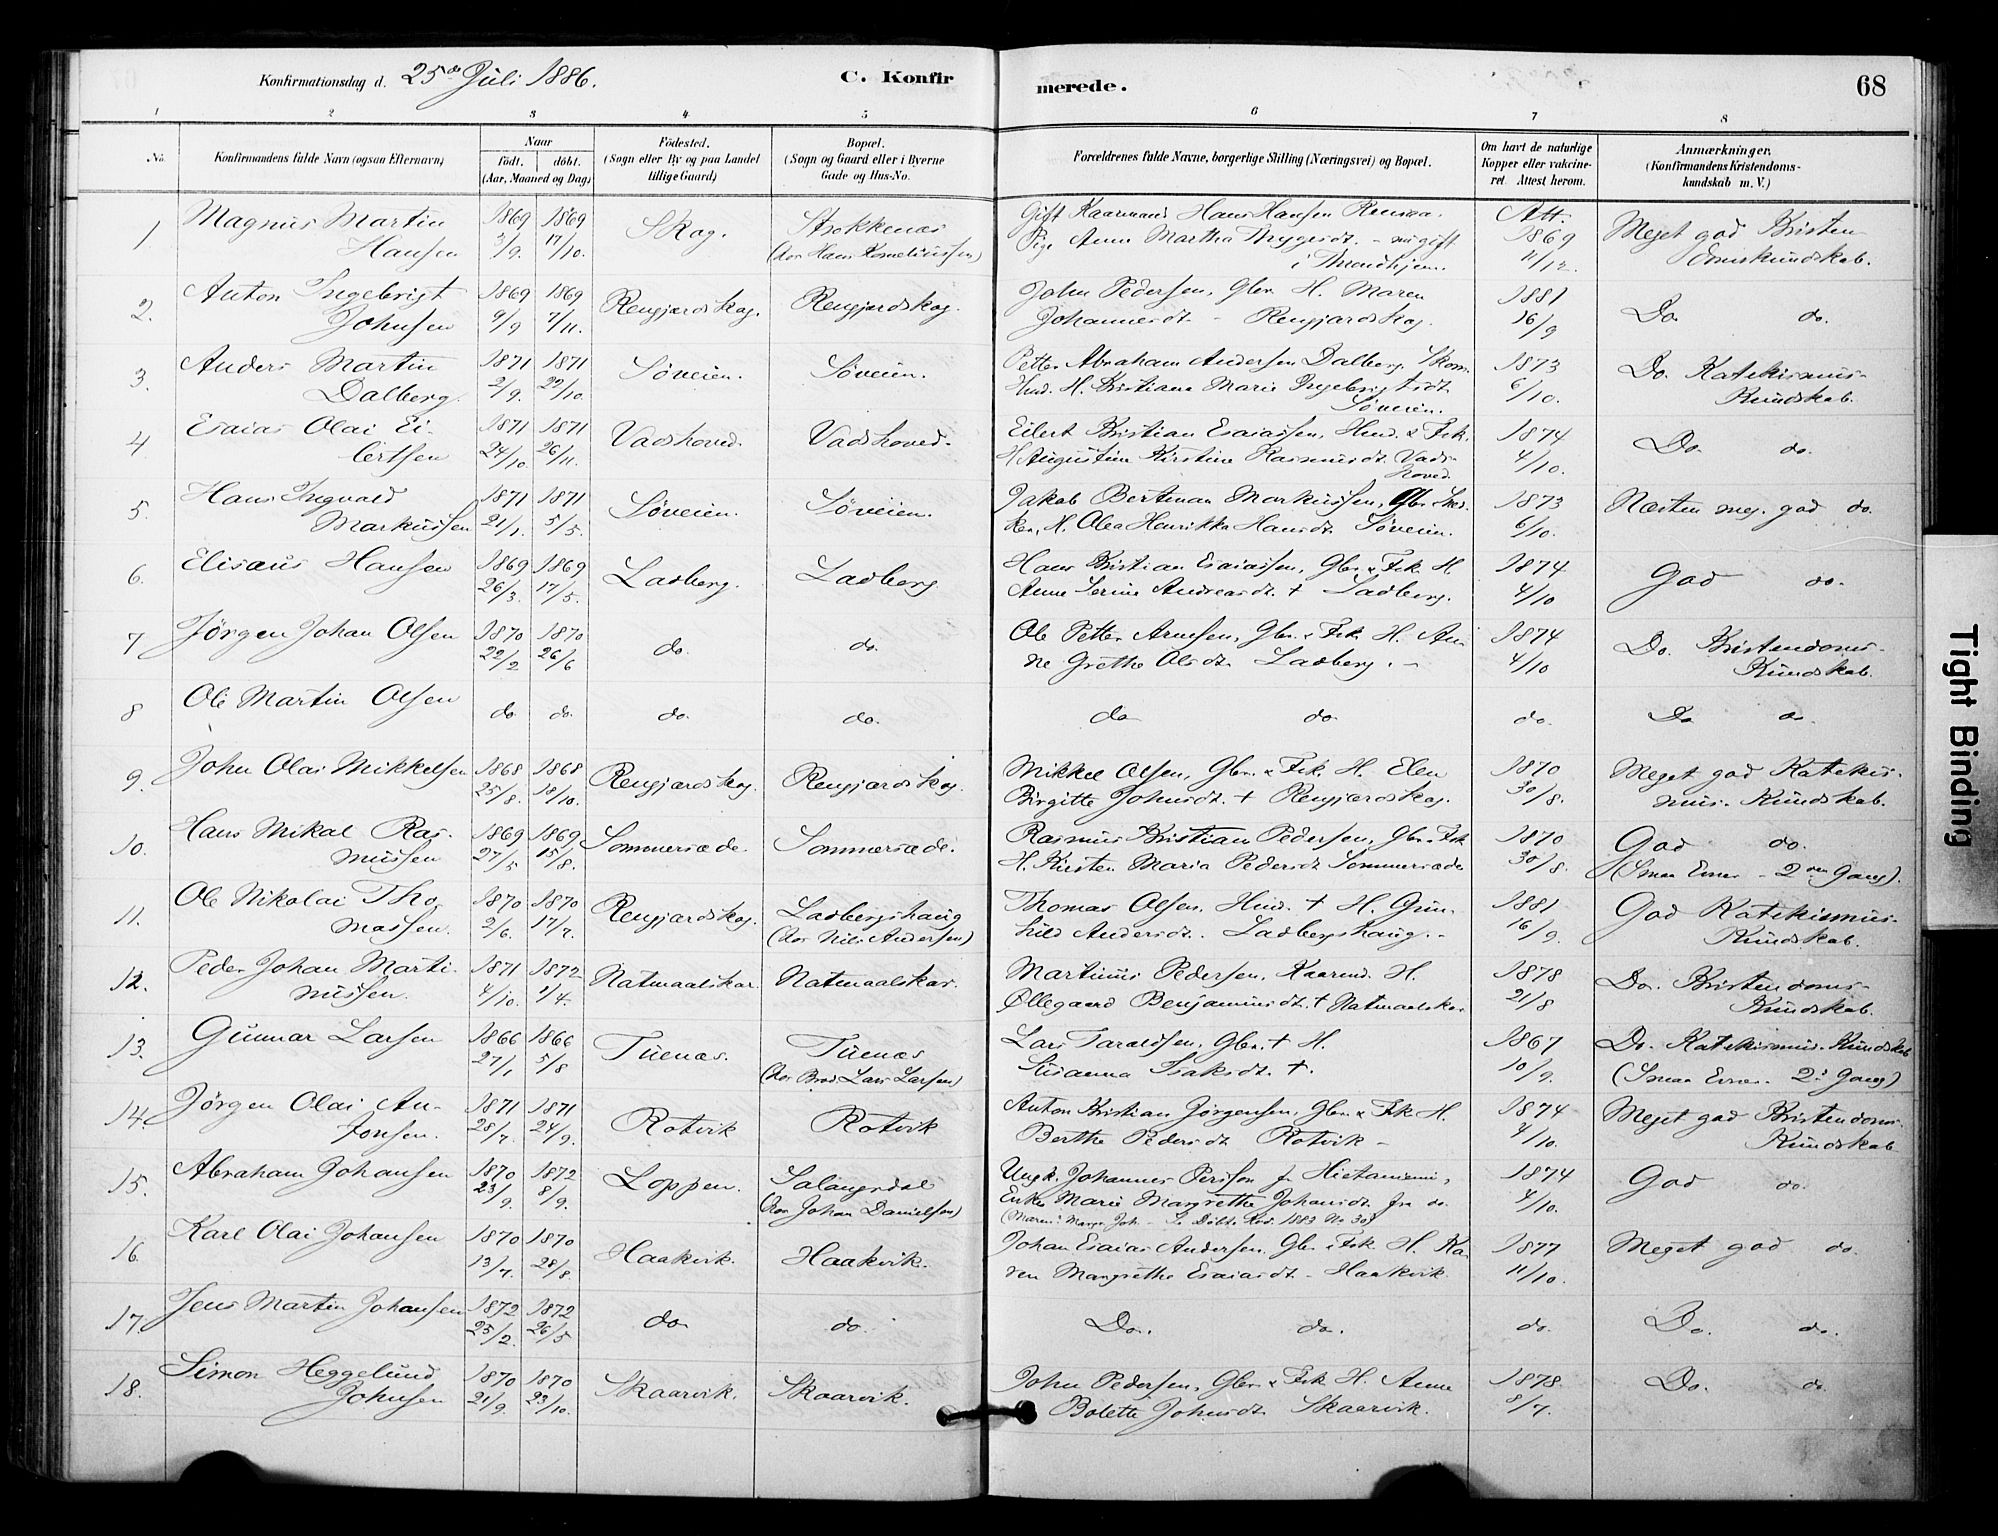 Konfirmationsdag d. 25de Juli 1886.
C. Konfir
merede.
68
1 2 3 4 5 6 7 8
No.
Konfirmandens fulde Navn (ogsaa Efternavn)
Naar
født. døbt.
(Aar, Maaned og Dag)
Fødested.
(Sogn eller By og paa Landet
tillige Gaard)
Bopæl.
(Sogn og Gaard eller i Byerne
Gade og Hus-No.
Forældrenes fulde Navne, borgerlige Stilling (Næringsvei) og Bopæl.
Om havt de naturlige
Kopper eller vakcine-
ret. Attest herom.
Anmærkninger,
(Konfirmandens Kristendoms-
kundskab m. V.)
1 Magnus Martin 1869 1869 Skog. Gift Kaarmand Hans Hansen Att. Meget god Kristen-
Hansen 3/9. 17/10. (hos Hans Korneliussen) Pige Anne Martha 1869 domskundskab.
i Trondhjem. 11/12.
2. Anton Ingebrigt 1869 1869 Rengjærdskog. Rengjærdskog. John Pedersen, Gbr. H. Maren 1881 Do do.
Johnsen 9/9 7/11. Johannesdt. - Rengjærdskog. 16/9
3. Anders Martin 1871 1871 Søveien. Søveien. Petter Abraham Andersen Dalberg, Skom. 1873 Do. Katekismus-
Dalberg. 2/9. 22/10. Hmd. H. Kristiane Marie Ingebrigtsdt. 6/10. Kundskab.
Søveien.
4 Esaias Olai Ei- 1871 1871 Vadshoved. Vadshoved. Eilert Kristian Esaiassen, Hmd. & Fsk. 1874 Do do.
lertsen 24/10. 26/11. H. Augustine Kirstine Rasmusdt. Vads- 4/10.
hoved.
5. Hans Ingvald 1871 1871 Søveien. Søveien. Jakob Bertinan Markussen, Gbr. 1873 Næsten meg. god do.
Markussen 21/1. 5/5. H. Olea Henrikka Hansdt. Søveien. 6/10.
6. Elisæus Hansen 1869 1869 Ladberg. Ladberg. Hans Kristian Esaiassen, Gbr. & Fsk. H. 1874 God do.
26/3. 17/5. Anne Serine Andreasdt. + Ladberg. 4/10
7 Jørgen Johan Olsen 1870 1870 do. do. Ole Petter Arnesen, Gbr. & Fsk. H. An- 1874 Do. Kristendoms-
22/2 26/6 ne Grethe Olsdt. Ladberg. - 4/10 Kundskab.
8 Ole Martin Olsen do do. do. do. do do. do. Do do.
9. John Olai Mikkelsen 1868 1868 Rengjærdskog. Rengjærdskog. Mikkel Olsen, Gbr. & Fsk. H. Elen 1870 Meget god Katekis-
25/8. 18/10. Birgitte Johnsdt. + Rengjærdskog. 30/8. mus-Kundskab.
10. Hans Mikal Ras- 1869 1869 Sommersæde. Sommersæde. Rasmus Kristian Pedersen, Gbr. & Fsk 1870 God do.
mussen 27/5 15/8. H. Kirsten Maria Pedersdt. Sommersæde 30/8. (Smaa Evner - 2den Gang).
11. Ole Nikolai Tho- 1870 1870 Rengjærdskog. Ladbergshaug Thomas Olsen, Hmd. + H. Gun- 1881 God Katekismus-
massen. 2/6. 17/7. (hos Nils Andersen) hild Andersdt. Ladbergshaug. - 16/9. Kundskab.
12. Peder Johan Marti- 1871 1872 Natmaalskar. Natmaalskar. Martinus Pedersen, Kaarmd. H. 1878 Do. Kristendoms-
nussen. 4/10. 1/4. Øllegaard Benjaminsdt. + Natmaalskar 21/8 Kundskab.
13. Gunnar Larsen 1866 1866 Tuenæs. Tuenæs Lars Taraldsen, Gbr. + H. 1867 Do. Katekismus-Kundskab
27/1 5/8 (hos Brod. Lars Larsen) Susanna Isaksdt. +. 10/9. (Smaa Evner. 2d Gang)
14. Jørgen Olai An- 1871 1871 Rotvik Rotvik Anton Kristian Jørgensen, Gbr. & Fsk. H. 1874 Meget god Kristendoms-
tonsen. 28/7. 24/9. Berthe Pedersdt. Rotvik - 4/10. Kundskab
15. Abraham Johansen 1870 1872 Loppen. Salangsdal Ungk. Johannes Persson fr. Hietaniemi, 1874 God do.
23/9. 8/9. (hos Johan Danielsen) Enke Marie Margrethe Johansdt. fra do. 4/10.
(Maren Margr. Joh. - Se Døbte Ked. 1883 No 30)
16. Karl Olai Johansen 1870 1870 Haakvik. Haakvik. Johan Esaias Andersen, Gbr. & Fsk. H. Ka- 1877 Meget god do.
13/7. 28/8. ren Margrethe Esaiasdt. - Haakvik. 11/10.
17. Jens Martin Johansen 1872 1872 do. do. Do. do. do. Do. do.
25/2. 26/5
18. Simon Heggelund 1870 1870 Skaarvik. Skaarvik. John Pedersen, Gbr. & Fsk. H. Anne 1878. Do. do.
Johnsen 21/9. 23/10. Bolette Johnsdt. Skaarvik. 8/7.
Tight Binding